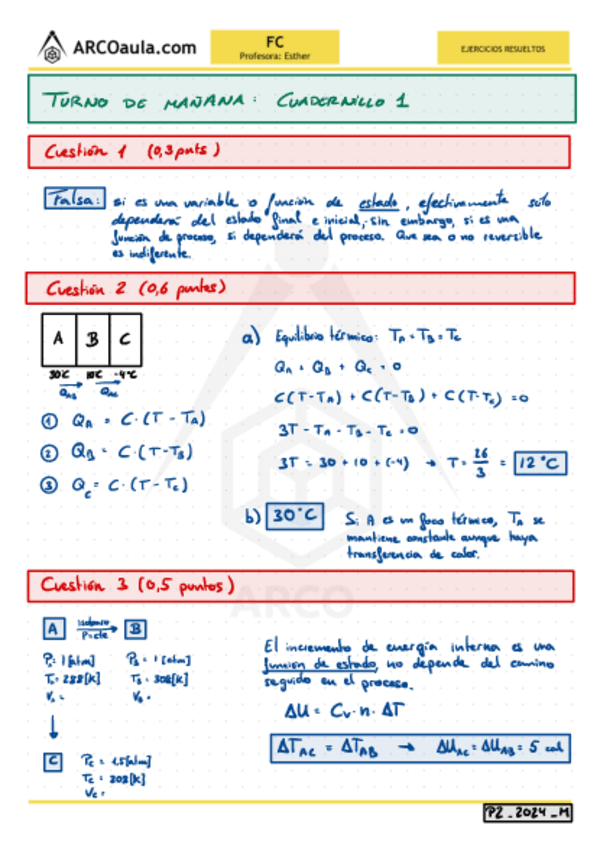 ARCOaula.com
FC
Profesora: Esther
EJERCICIOS RESUELTOS
TURNO DE MAÑANA: CUADERNILLO 1
Cuestión 1 (0,3 pnts)
Falsa: si es una variable o función de estado, efectivamente solo
dependerá del estado final e inicial, sin embargo, si es una
función de proceso, si dependerá del proceso. Que sea o no reversible
es indiferente.
Cuestión 2 (0,6 puntos)
A B C
30°C 10°C -4°C
Q_AB
① Q_A = C·(T - T_A)
② Q_B = C·(T-T_B)
③ Q_C = C·(T-T_C)
a) Equilibrio térmico: T_A = T_B = T_C
Q_A + Q_B + Q_C = 0
C(T-T_A) + C(T-T_B) + C(T-T_C) = 0
3T - T_A - T_B - T_C = 0
3T = 30 + 10 + (-4) → T = 36/3 = 12°C
b) 30°C
Si A es un foco térmico, T_A se
mantiene constante aunque haya
transferencia de calor.
ARCO
Cuestión 3 (0,5 puntos)
A isobaro P=cte B
P_A = 1 [atm] P_B = 1 [atm]
T_A = 298[K] T_B = 308[K]
V_A = V_B =
C P_C = 1,5[atm]
T_C = 308[K]
V_C =
El incremento de energía interna es una
función de estado, no depende del camino
seguido en el proceso.
ΔU = C_V · n · ΔT
ΔT_AC = ΔT_AB → ΔU_AC = ΔU_AB = 5 cal
P2_2024_M